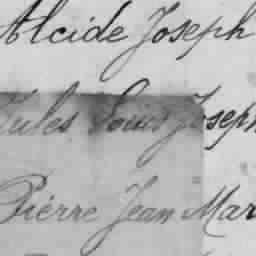 Alcide Joseph
Jules Louis Joseph
Pierre Jean Mar